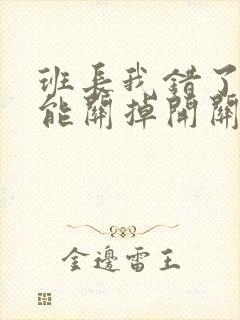 班長我錯了
能關掉開關
金邊雷王